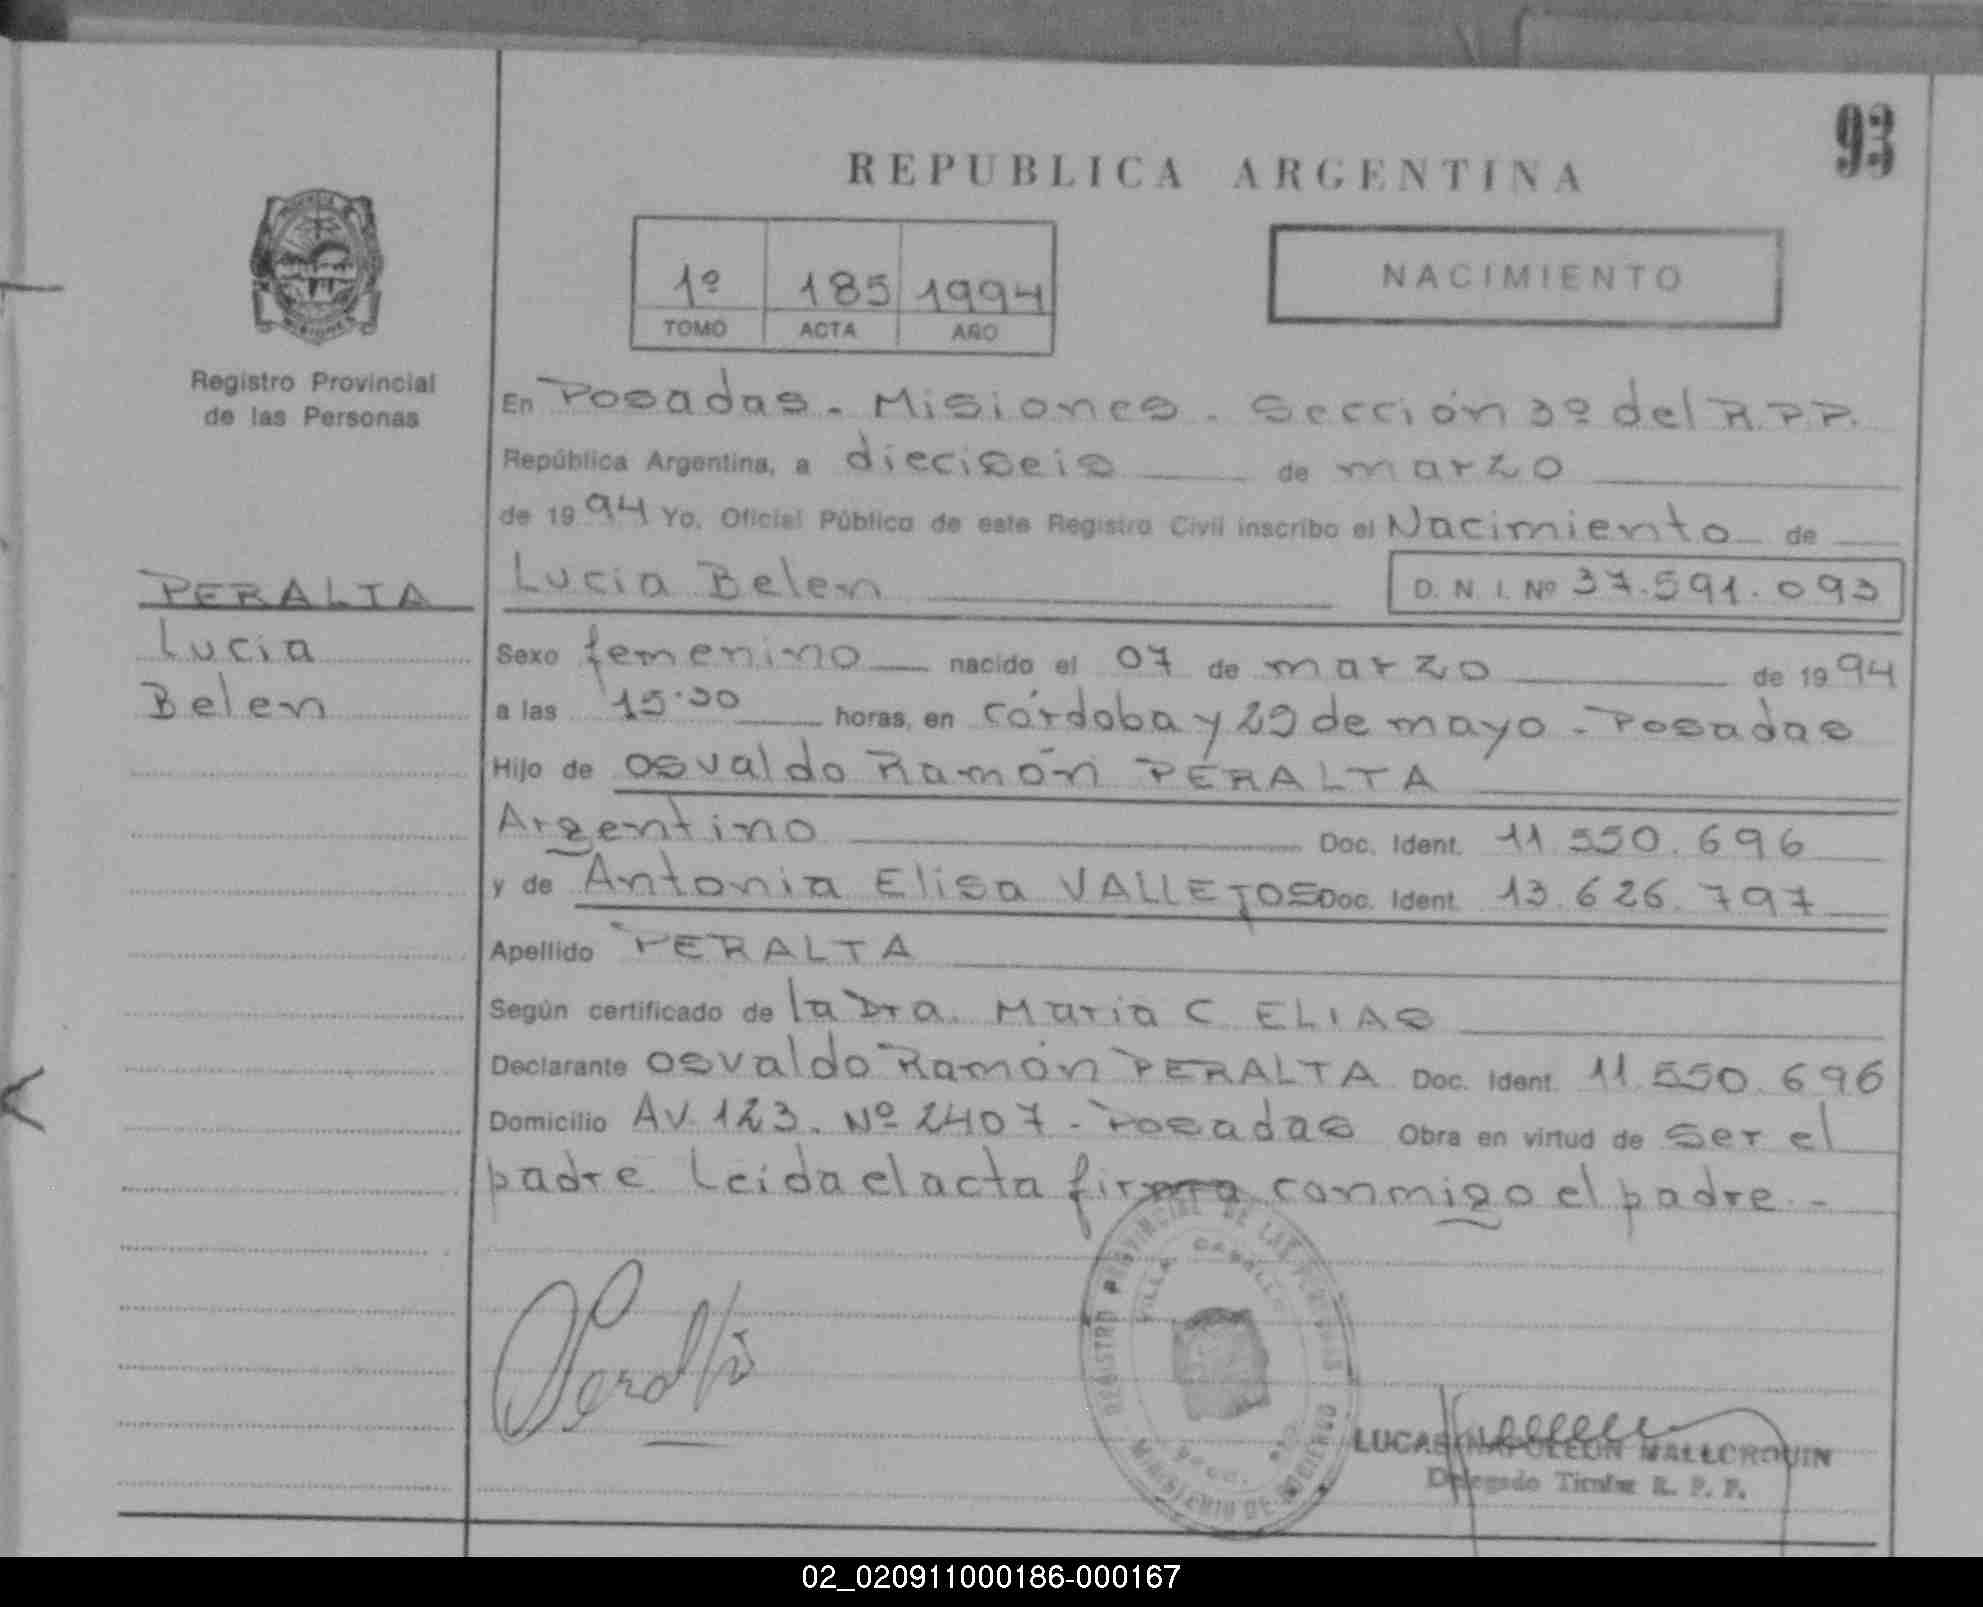 93
REPUBLICA ARGENTINA
1º 185 1994
TOMO ACTA AÑO
NACIMIENTO
Registro Provincial
de las Personas
PERALTA
Lucia
Belen
En Posadas. Misiones. Sección 3º del R.P.P.
República Argentina, a dieciseis de marzo
de 1994 Yo, Oficial Público de este Registro Civil inscribo el Nacimiento de
Lucia Belen D. N. I. Nº 37.591.093
Sexo femenino nacido el 07 de marzo de 1994
a las 15.30 horas, en córdoba y 29 de mayo - Posadas
Hijo de Osvaldo Ramón PERALTA
Argentino Doc. Ident. 11.550.696
y de Antonia Elisa VALLEJOS Doc. Ident. 13.626.797
Apellido PERALTA
Según certificado de la Dra. Maria C ELIAS
Declarante Osvaldo Ramón PERALTA Doc. Ident. 11.550.696
Domicilio AV. 123. Nº 2407 - Posadas Obra en virtud de ser el
padre. Leida el acta firma conmigo el padre.-
Peralta
REGISTRO PROVINCIAL DE LAS PERSONAS
VILLA CABELLO
MINISTERIO DE GOBIERNO
LUCAS NAPOLEON MALLCROUIN
Delegado Titular R. P. P.
02_020911000186-000167